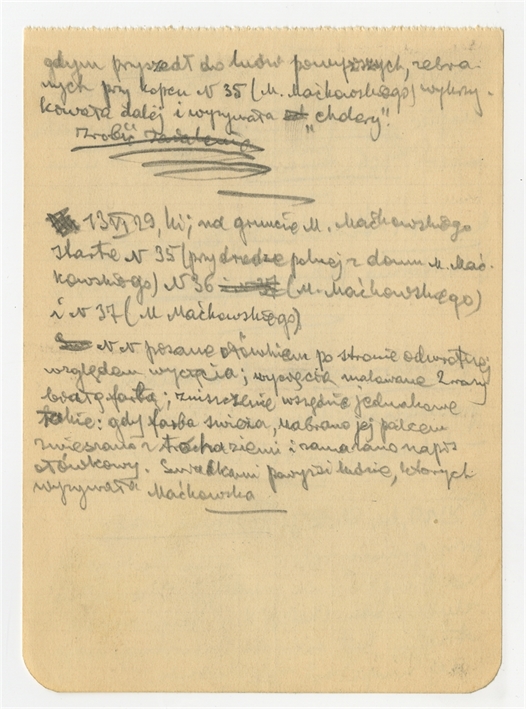 gdym przyszedł do ludzi powyższych, zebra-
nych przy kopcu N 35 (M. Maćkowskiego) wykrzy-
kowała dalej i wyzywała od "cholery".
Zrobić
13 VI 29, ki; na gruncie M. Maćkowskiego
starte N 35 (przy drodze polnej z domu M. Mać-
kowskiego) N 36 (M. Maćkowskiego)
i N 37 (M Maćkowskiego)
N N pisane ołówkiem po stronie odwrotnej
względem wycięcia; wycięcie malowane 2 razy
białą farbą; zniszczenie wszędzie jednakowe
takie: gdy farba świeża, nabrano jej palcem
zmieszano z trochą ziemi i zamazano napis
ołówkowy. Świadkami powyżsi ludzie, których
wyzywała Maćkowska